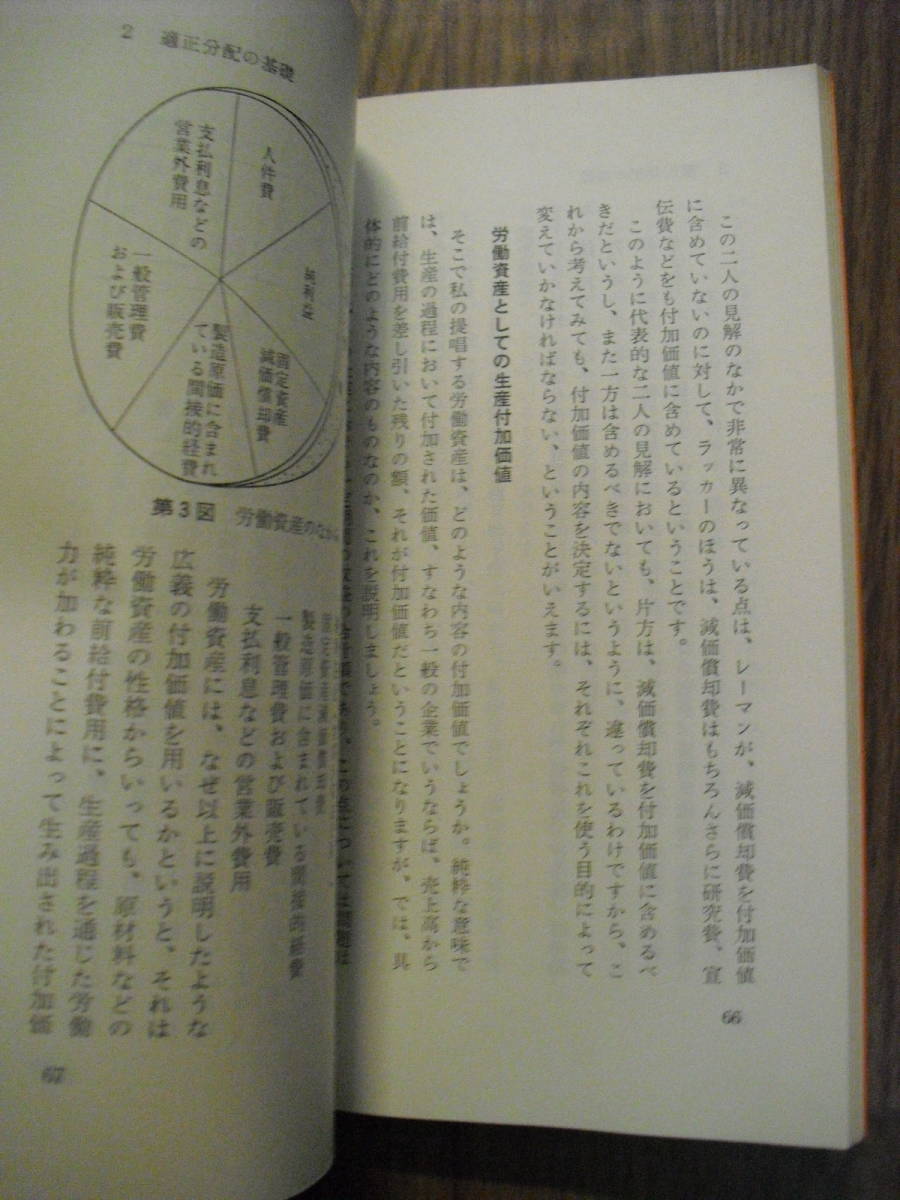 この二人の見解のなかで非常に異なっている点は、レーマンが、減価償却費を付加価値
に含めていないのに対して、ラッカーのほうは、減価償却費はもちろんさらに研究費、宣
伝費などをも付加価値に含めているということです。
このように代表的な二人の見解においても、片方は、減価償却費を付加価値に含めるべ
きだというし、また一方は含めるべきでないというように、違っているわけですから、こ
れから考えてみても、付加価値の内容を決定するには、それぞれこれを使う目的によって
変えていかなければならない、ということがいえます。
労働資産としての生産付加価値
そこで私の提唱する労働資産は、どのような内容の付加価値でしょうか。純粋な意味で
は、生産の過程において付加された価値、すなわち一般の企業でいうならば、売上高から
前給付費用を差し引いた残りの額、それが付加価値だということになりますが、では、具
体的にどのような内容のものなのか、これを説明しましょう。
66
2 適正分配の基礎
人件費
純利益
固定資産
減価償却費
製造原価に含まれ
ている間接的経費
一般管理費
および販売費
支払利息などの
営業外費用
第3図 労働資産のなか
固定資産減価償却費
製造原価に含まれている間接的経費
一般管理費および販売費
支払利息などの営業外費用
労働資産には、なぜ以上に説明したような
広義の付加価値を用いるかというと、それは
労働資産の性格からいっても、原材料などの
純粋な前給付費用に、生産過程を通じた労働
力が加わることによって生み出された付加価
67